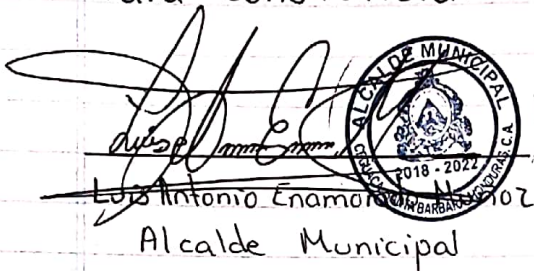 constancia
ALCALDE MUNICIPAL
2018 - 2022
HONDURAS, C.A.
Luis Antonio Enamorado Muñoz
Alcalde Municipal